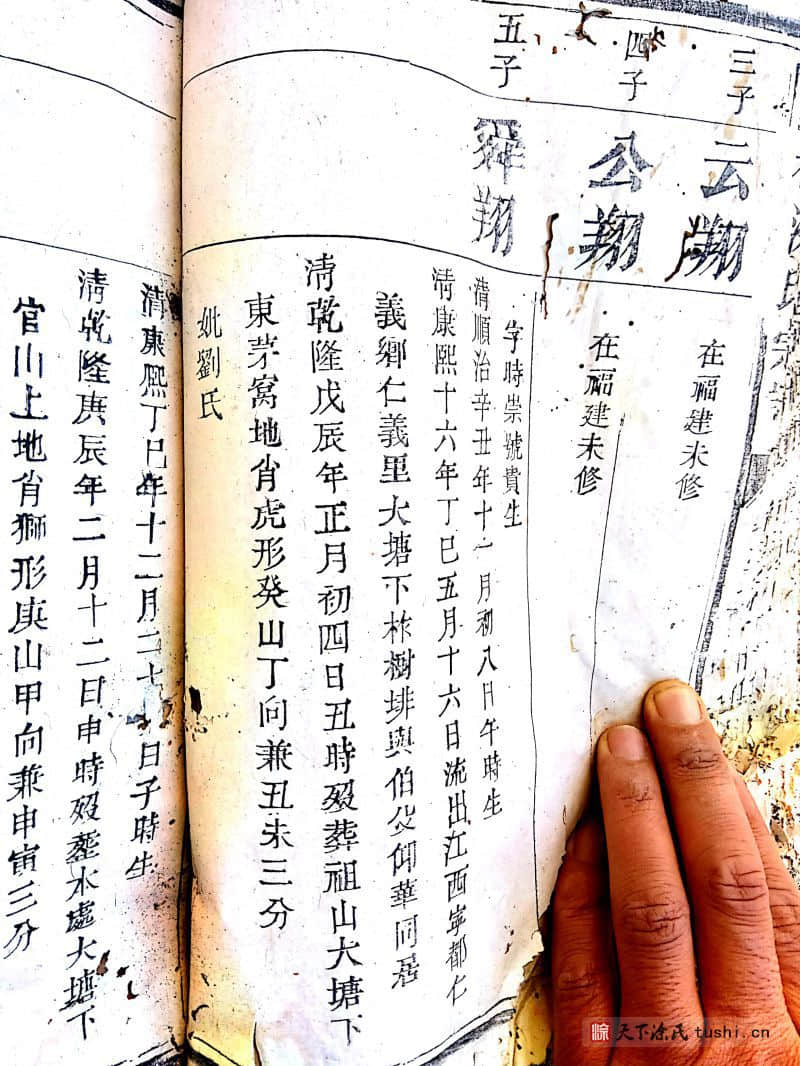 三子
云翔
在福建未修
四子
公翔
在福建未修
五子
舜翔
字時崇號貴生
清順治辛丑年十一月初八日午時生
清康熙十六年丁巳五月十六日流出江西寧都仁
義鄉仁義里大塘下柞樹排與伯父仰華同居
清乾隆戊辰年正月初四日丑時歿葬祖山大塘下
東茅窩地肖虎形癸山丁向兼丑未三分
妣劉氏
清康熙丁巳年十二月二十日子時生
清乾隆庚辰年二月十二日申時歿葬水處大塘下
官山上地肖獅形庚山甲向兼申寅三分
天下涂氏 tushi.cn